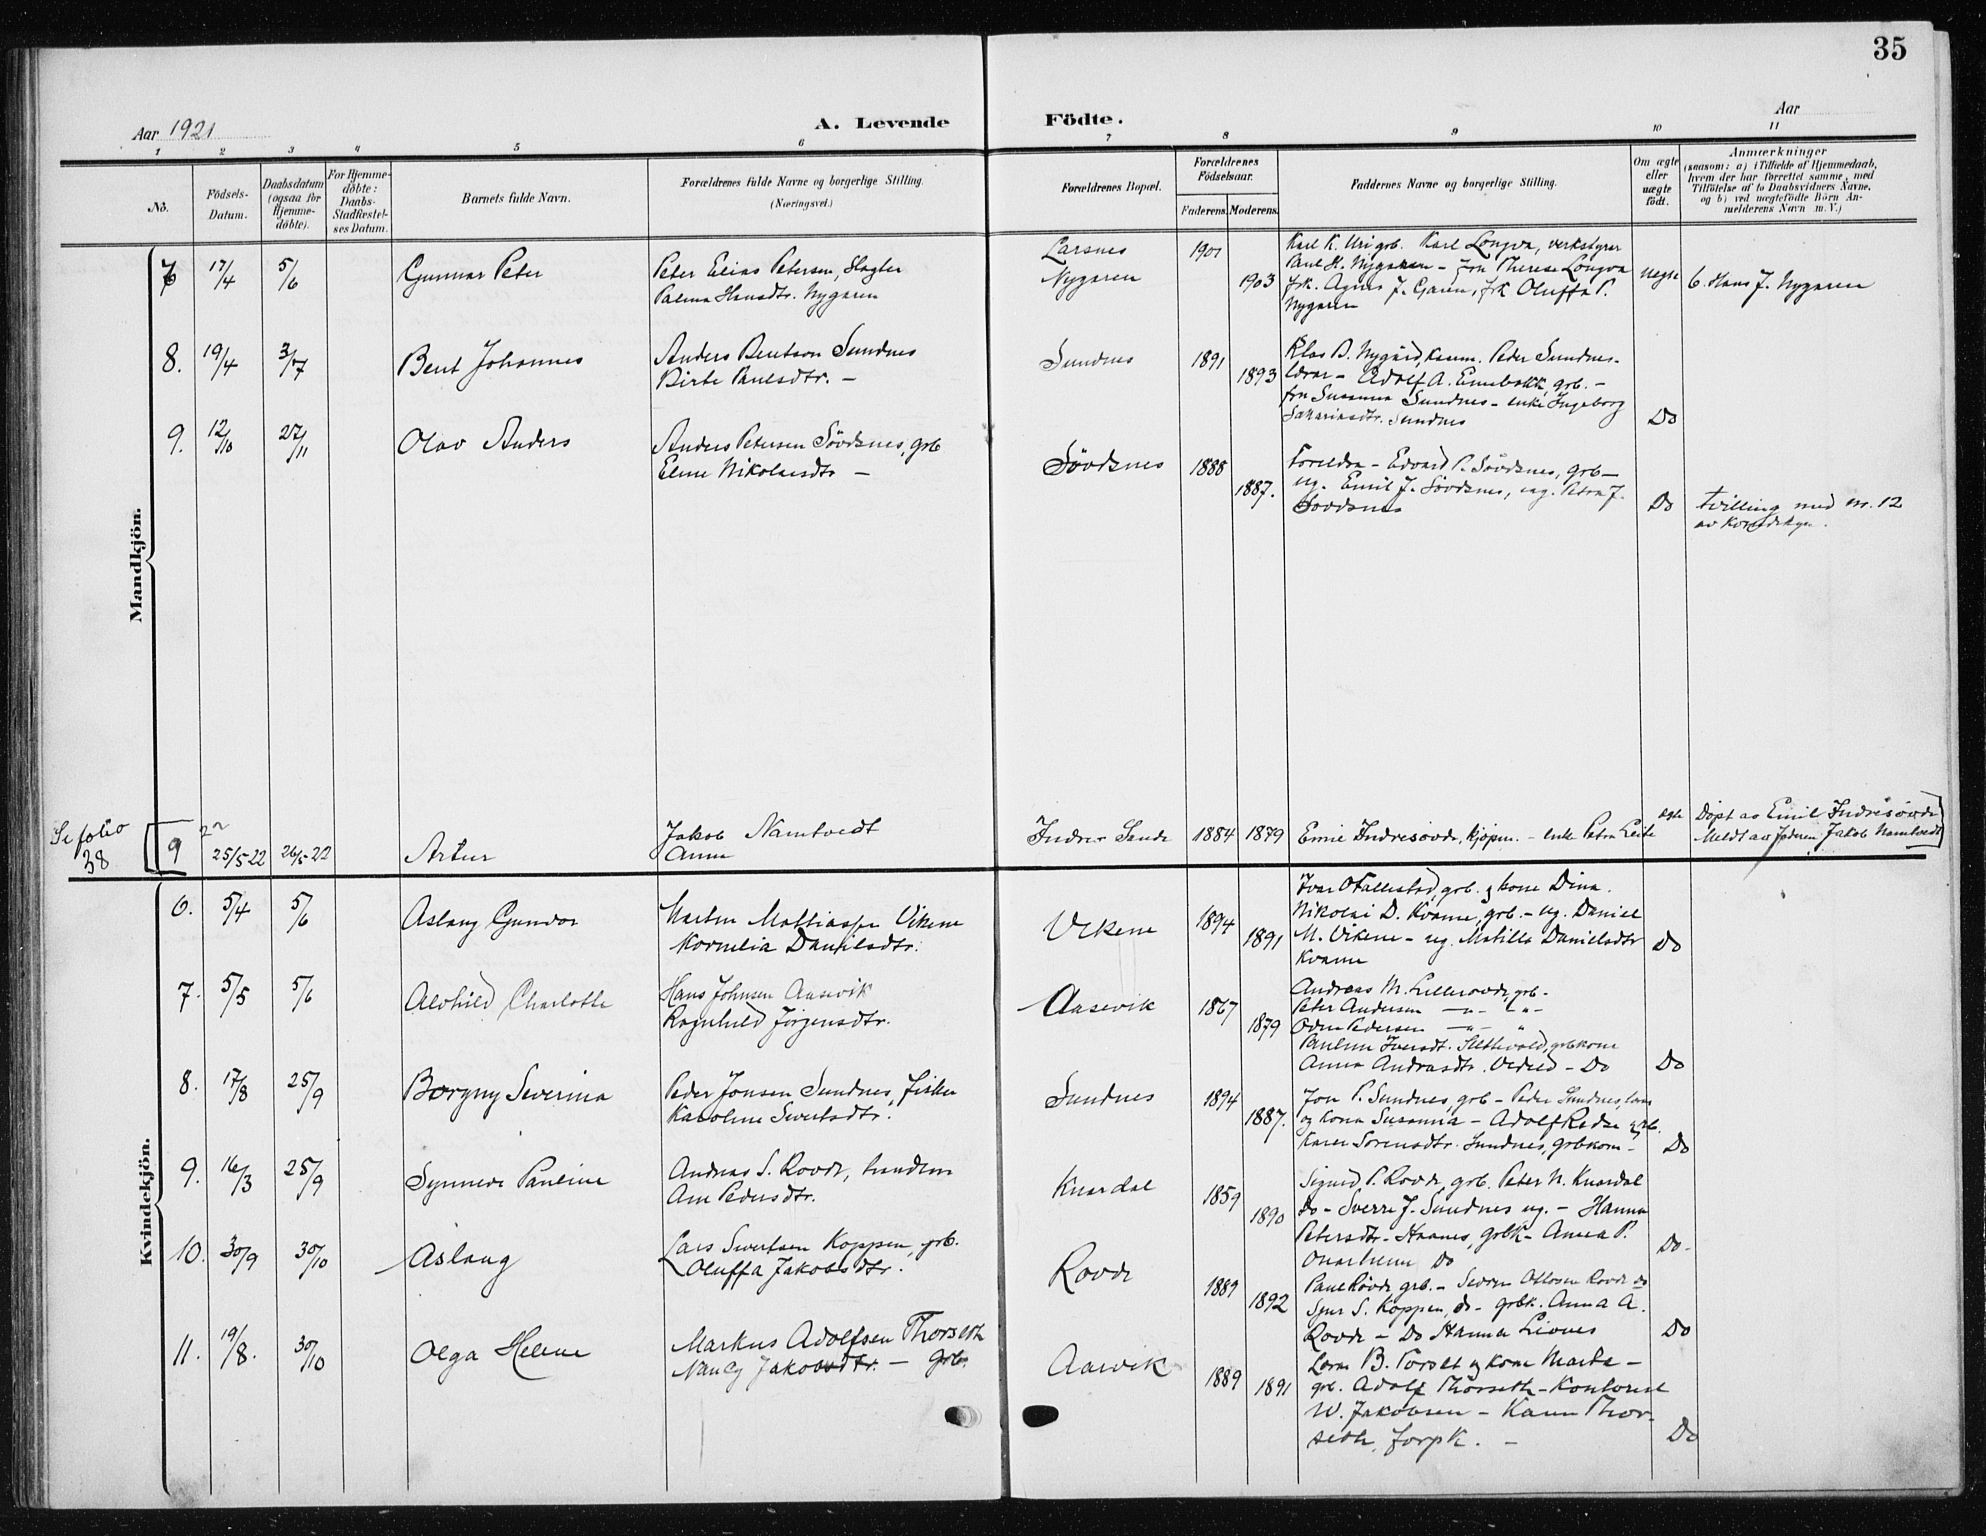 35
Aar 1921
A. Levende Födte.
Aar
1 2 3 4 5 6 7 8 9 10 11
No.
Födsels-
Datum.
Daabsdatum
(ogsaa for
Hjemme-
döbte).
For Hjemme-
döbte:
Daabs-
Stadfæstel-
ses Datum.
Barnets fulde Navn.
Forældrenes fulde Navne og borgerlige Stilling.
(Næringsvei.)
Forældrenes Bopæl.
Forældrenes
Födselsaar.
Faderens. Moderens.
Faddernes Navne og borgerlige Stilling.
Om ægte
eller
uægte
födt.
Anmærkninger
(saasom: a) i Tilfælde af Hjemmedaab,
hvem der har forrettet samme, med
Tilföielse af to Daabsvidners Navne,
og b) ved uægtefödte Börn An-
melderens Navn m. V.)
Mandkjön.
7 17/4 5/6 Gunnar Peter
Peter Elias Petersen, Slagter
Palma Hansdtr. Nygaren
Larsnes
Nygaren
1901
1903
Karl K. Uri grb. Karl Longva, verkstyrar
Paul H. Nygaren - fru Therese Longva
frk. Agnes J. Garen, frk Oluffa P.
Nygaren
uegte
b. Hans J. Nygaren
8. 19/4 3/7 Bent Johannes
Anders Bentson Sundnes
Birte Paulsdtr. -
Sundnes
1891
1893
Klas B. Nygård, Peder Sundnes-
lærar - Adolf A. grb. -
fru Susanna Sundnes - enke Ingeborg
Sakariasdtr. Sundnes
Do
9. 12/10 27/11 Olav Anders
Anders Petersen Sövdsnes, grb
Eline Nikolaisdtr -
Sövdsnes
1888
1887.
Foreldra - Edvard P. Sövdsnes, grb -
ug. Emil J. Sövdsnes, ug. Petra J.
Sovdsnes
Do
tvilling med nr. 12
av
Se folio
38
9 25/5-22 26/5-22 Artur
Jakob Namtvedt
Anna
Indre Sande
1884 1879
Emil Indresovde, kjøpm. - enke Petra Leite
egte
Døpt av Emil Indresövde
Meldt av faderen, Jakob Namtvedt
Kvindekjön.
6. 5/4 5/6 Aslaug Gundor
Martin Mattiassen Vikene
Kornelia Danielsdtr.
Vikene
1894
1891
Ivar O Fallestad, grb. og kone Dina.
Nikolai D. Kvame, grb. - ug. Daniel
M. Vikene - ug. Matilla Danielsdtr
Kvame
Do
7. 5/5 5/6 Alvhild Charlotte
Hans Johnsen Aasevik
Ragnhild Jörgensdtr.
Aasevik
1867
1879
Andreas M. Lillesovde, grb -
Peter Andersen -"- -"-
Odin Pedersen -"- "
Pauline Iversdt. grbkone
Anna Andrasdtr. - Do
Do
8. 17/8 25/9 Borgny Severina
Peder Jonsen Sundnes, fisker
Karoline Sivertsdtr.
Sundnes
1894
1887.
Jon P. Sundnes, grb - Peder Sundnes,
og kona Susanna - Adolf grb.
Karen Sorensdtr. Sundnes, grbkone -
Do
9. 16/3 25/9 Synneve Pauline
Andreas S. Rovde,
Ane Pedersdtr.
Knardal
1859
1890
Sigurd P. Rovde, grb. Peter N. Knardal
do - Sverre J. Sundnes ug. - Hanna
Petersdtr. Haanes, grbk - Anna P.
Do
Do-
10. 30/9 30/10 Aslaug
Lars Sivertsen Koppen, grb.
Oluffa Jakobsdtr.
Rovde
1889
1892
Paul Rövde grb. - Severin Rovde do
S. Koppen, do - grbk. Anna A.
Rovde - Do Hanna
Do
11. 19/8. 30/10 Olga Helene
Markus Adolfsen Thorseth
Nancy Jakobsdtr. - grb.
Aasvik
1889 1891
B. Torset og kone Marta -
grb. Adolf Thorseth - Kontorist
W. Jakobsen - Karen Thor-
seth, forpk. -
Do